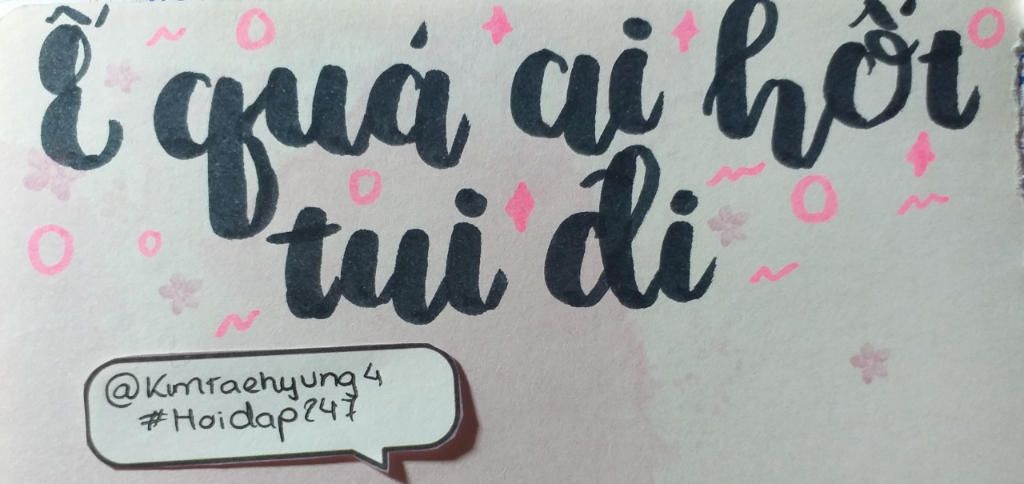 Ế quá ai hốt
tui đi
@Kimtaehyung4
#Hoidap247